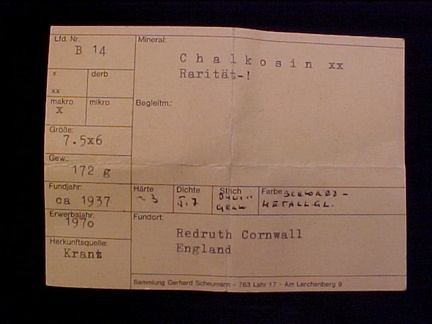 Lfd. Nr.
B 14
Mineral:
Chalkosin xx
Rarität-!
x
derb
xx
makro
mikro
x
Begleitm.:
Größe:
7.5x6
Gew.:
172 g
Fundjahr:
ca 1937
Härte
~ 3
Dichte
5.7
Strich
Farbe
SCHWARZ-
METALLGL.
Erwerbsjahr:
1970
Herkunftsquelle:
Krant
Fundort:
Redruth Cornwall
England
Sammlung Gerhard Scheumann - 763 Lahr 17 - Am Lerchenberg 9